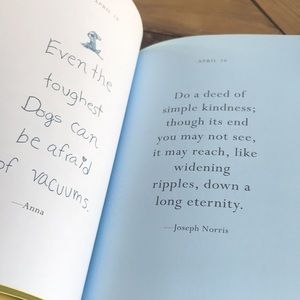 APRIL
Even the
toughest
Dogs can
be afraid
of vacuums.
—Anna
APRIL
Do a deed of
simple kindness;
though its end
you may not see,
it may reach, like
widening
ripples, down a
long eternity.
—Joseph Norris